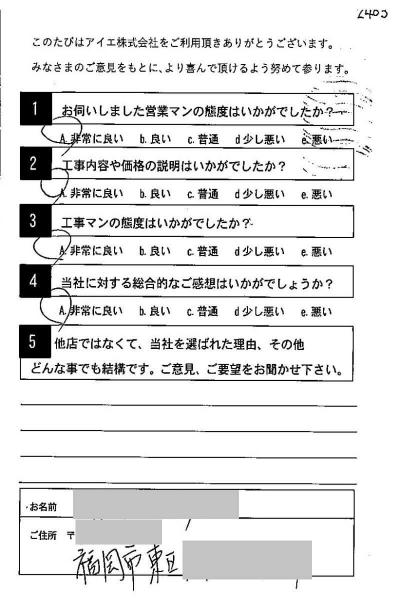 2405
このたびはアイエ株式会社をご利用頂きありがとうございます。
みなさまのご意見をもとに、より喜んで頂けるよう努めて参ります。
1 お伺いしました営業マンの態度はいかがでしたか？
A. 非常に良い b. 良い c. 普通 d 少し悪い e. 悪い
2 工事内容や価格の説明はいかがでしたか？
A. 非常に良い b. 良い c. 普通 d 少し悪い e. 悪い
3 工事マンの態度はいかがでしたか？
A. 非常に良い b. 良い c. 普通 d 少し悪い e. 悪い
4 当社に対する総合的なご感想はいかがでしょうか？
A. 非常に良い b. 良い c. 普通 d 少し悪い e. 悪い
5 他店ではなくて、当社を選ばれた理由、その他
どんな事でも結構です。ご意見、ご要望をお聞かせ下さい。
お名前
ご住所 〒
福岡市東区